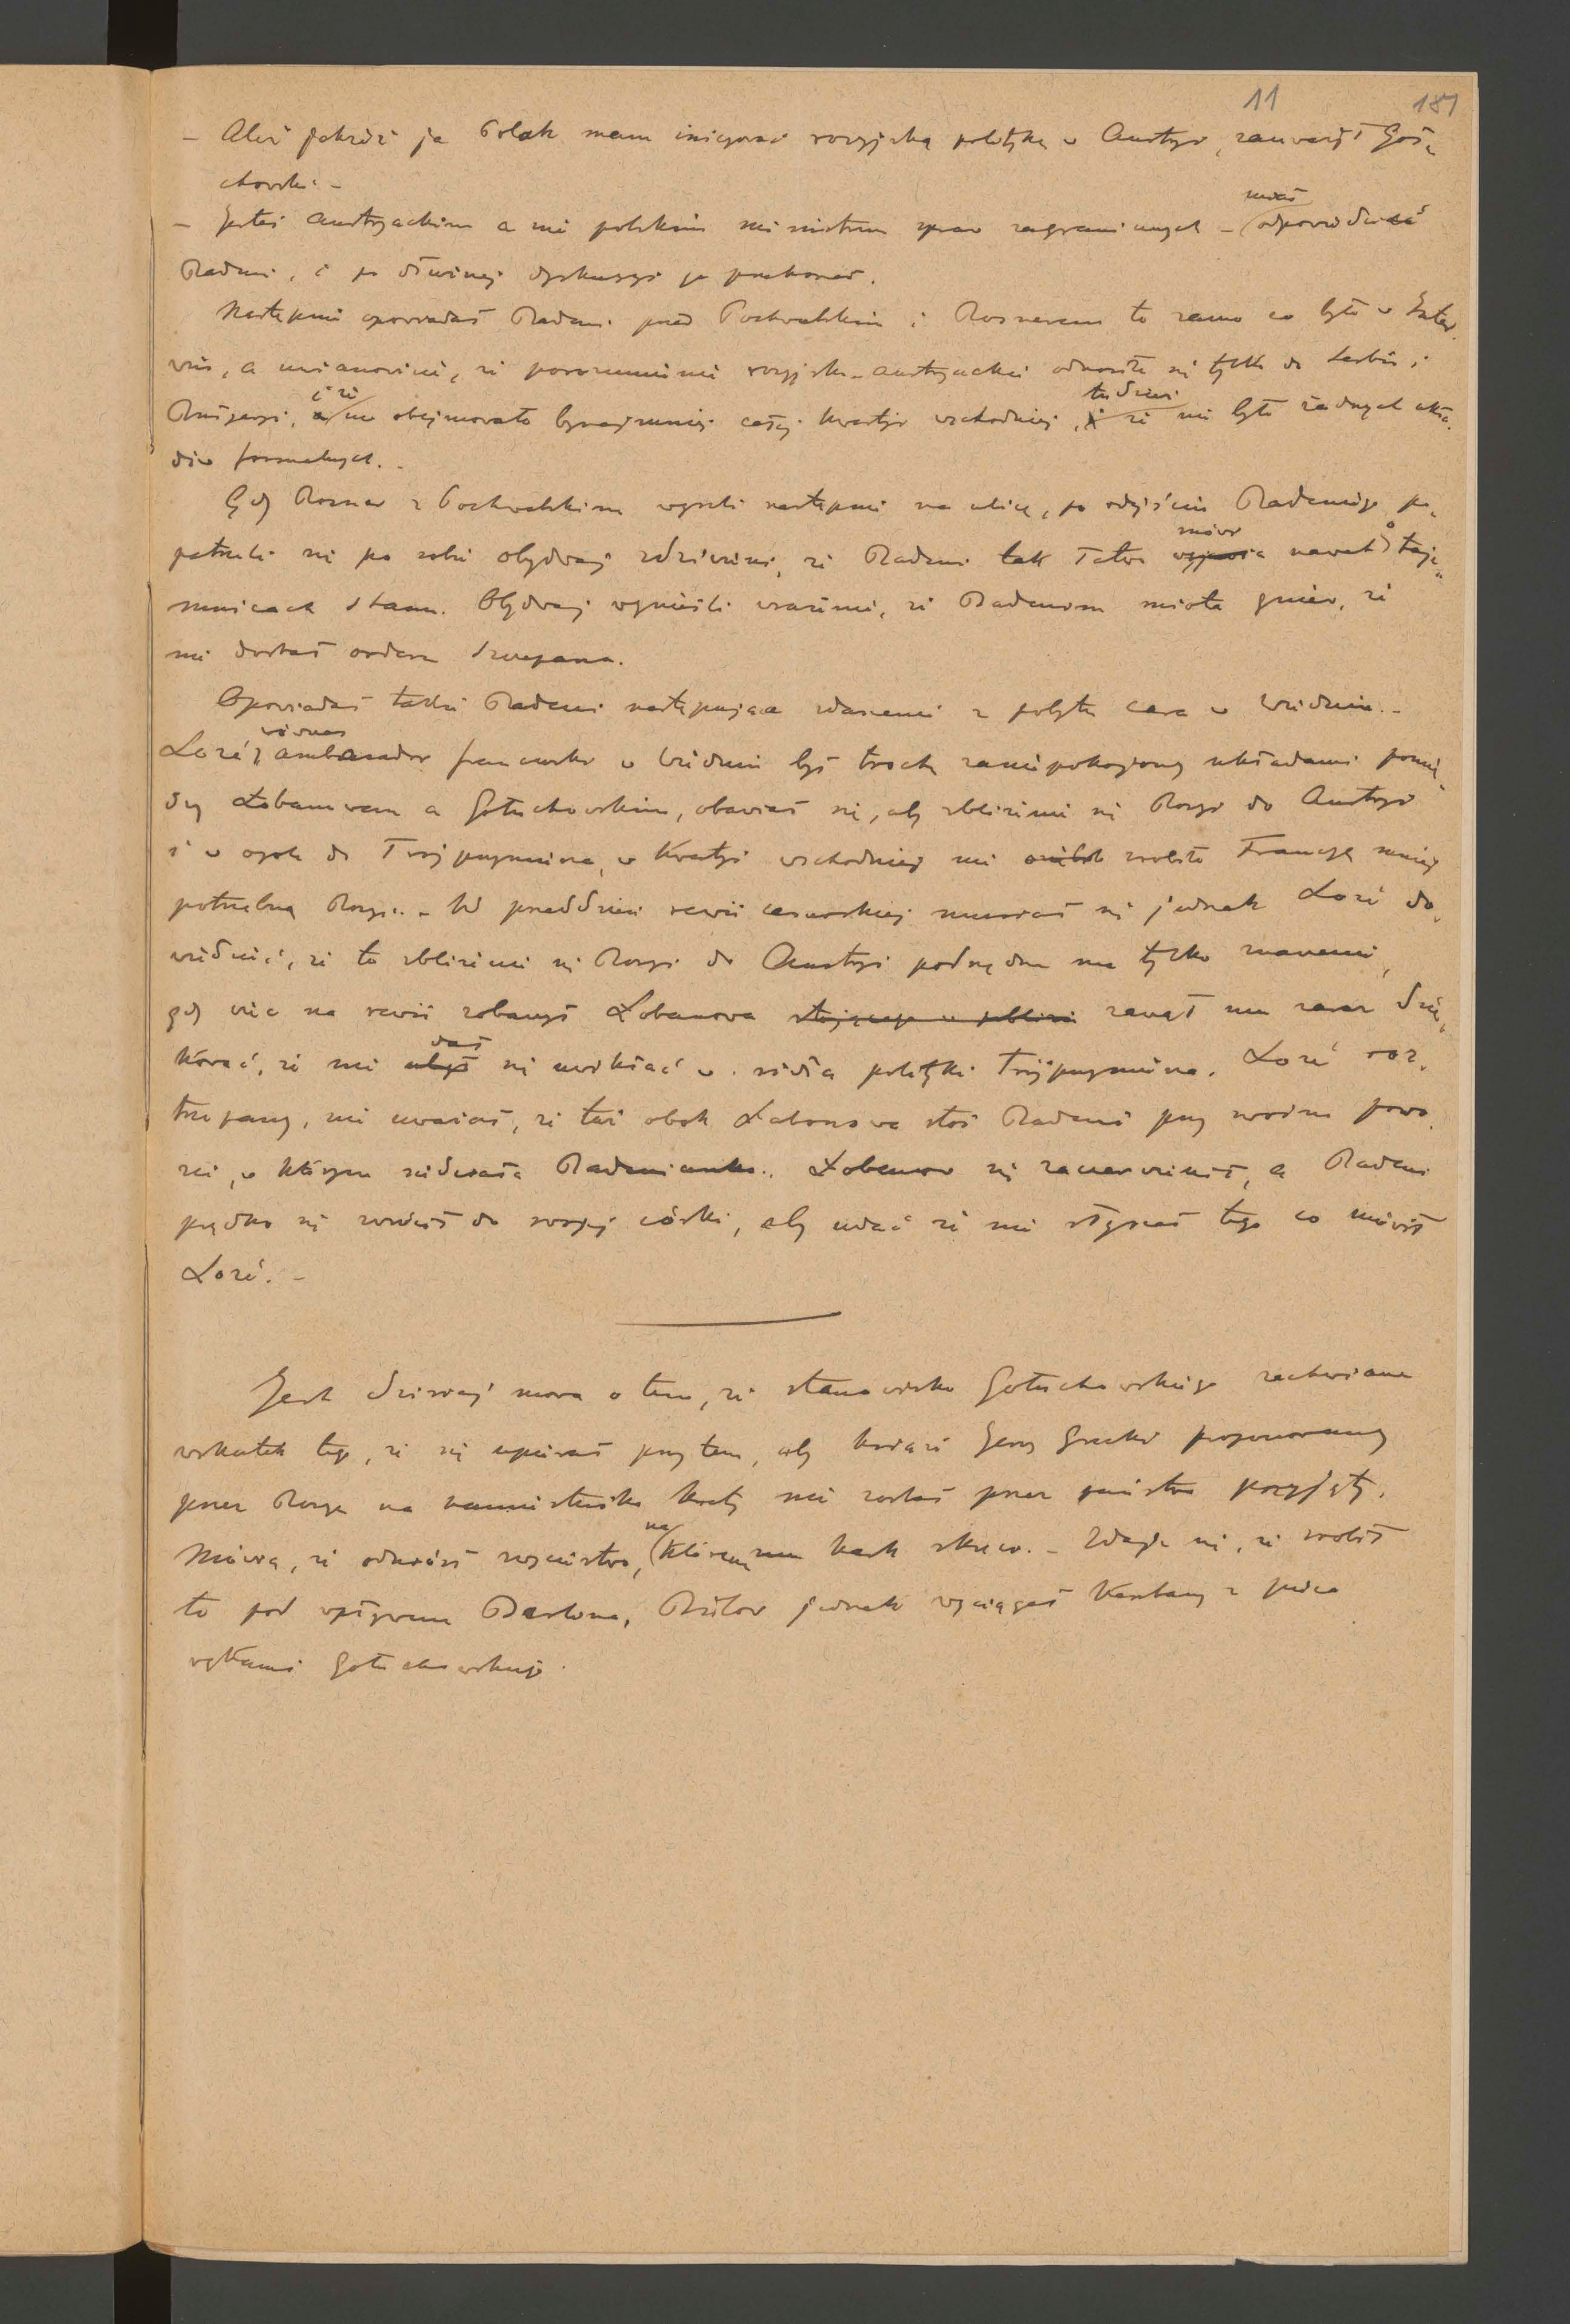 11 181
– Ależ jakżeż ja Polak mam inicyować rosyjską politykę w Austryi, zauważył Goł„
chowski. –
– Jesteś austryackim a nie polskim ministrem spraw zagranicznych – miał odpowiedzieć
Badeni, i po dłuższej dyskusyi go przekonał.
Następnie opowiadał Badeni przed Pochwalskim i Rosnerem to samo co było w Inter
wie, a mianowicie, że porozumienie rosyjsko-austryackie odnosiło się tylko do Serbii i
Bułgaryi, i że nie obejmowało bynajmniej całej kwestyi wschodniej, tudzież że nie było żadnych ukła„
dów formalnych. –
Gdy Rosner z Pochwalskim wyszli następnie na ulicę, po odejściu Badeniego po„
patrzeli się po sobie obydwaj zdziwieni, że Badeni tak łatwo mówi nawet o taje„
mnicach stanu. Obydwaj wynieśli wrażenie, że Badenim miota gniew, że
nie dostał orderu Szczepana.
Opowiadał także Badeni następujące zdarzenie z pobytu cara w Wiedniu. –
Lozé, ówczes ambasador francuski w Wiedniu był trochę zaniepokojony układami pomię„
dzy Łobanowem a Gołuchowskim, obawiał się, aby zbliżenie się Rosyi do Austryi
i w ogóle do Trójprzymierza, w kwestyi wschodniej nie zrobiło Francyę mniej
potrzebną Rosyi. – W przeddzień rewii cesarskiej musiał się jednak Lozé do„
wiedzieć, że to zbliżenie się Rosyi do Austryi podrzędne ma tylko znaczenie,
gdy więc na rewii zobaczył Łobanowa stojącego w pobliżu zaczął mu zaraz dzię„
kować, że nie dał się uwikłać w sidła polityki Trójprzymierza. Lozé roz„
trzepany, nie uważał, że tuż obok Łobanowa stoi Badeni przy swoim powo„
zie, w którym siedziała Badenianka. Łobanow się zaczerwienił, a Badeni
prędko się zwrócił do swojej córki, aby udać że nie słyszał tego co mówił
Lozé. –
Jest dzisiaj mowa o tem, że stanowisko Gołuchowskiego zachwiane
wskutek tego, że się upierał przy tem, aby książę Jerzy Grecki proponowany
przez Rosyę na namiestnika Krety nie został przez państwa przyjęty.
Mówią, że odniósł zwycięstwo, na którem kark skręci. – Zdaje się, że zrobił
to pod wpływem Berlina, Bülow jednak wyciągał kasztany z pieca
rękami Gołuchowskiego.